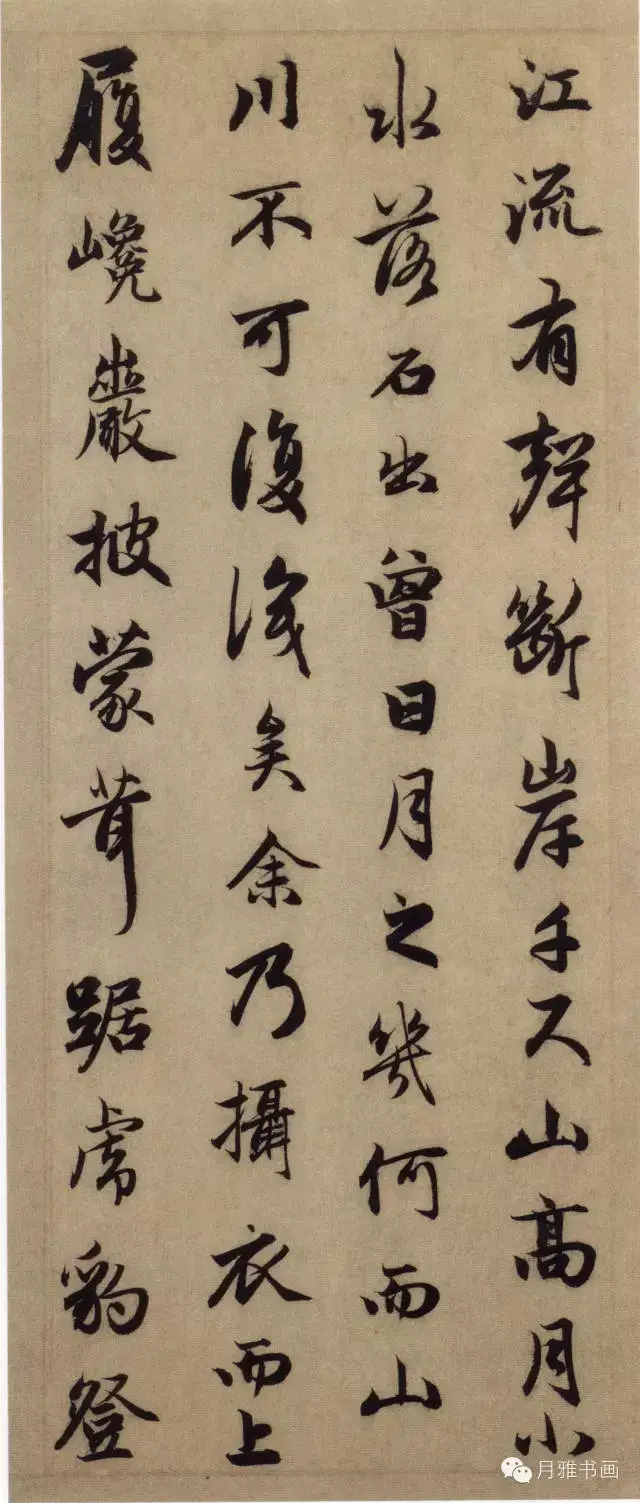 江流有聲斷岸千尺山高月小
水落石出曾日月之幾何而山
川不可復識矣余乃攝衣而上
履巉巖披蒙茸踞虎豹登
月雅书画